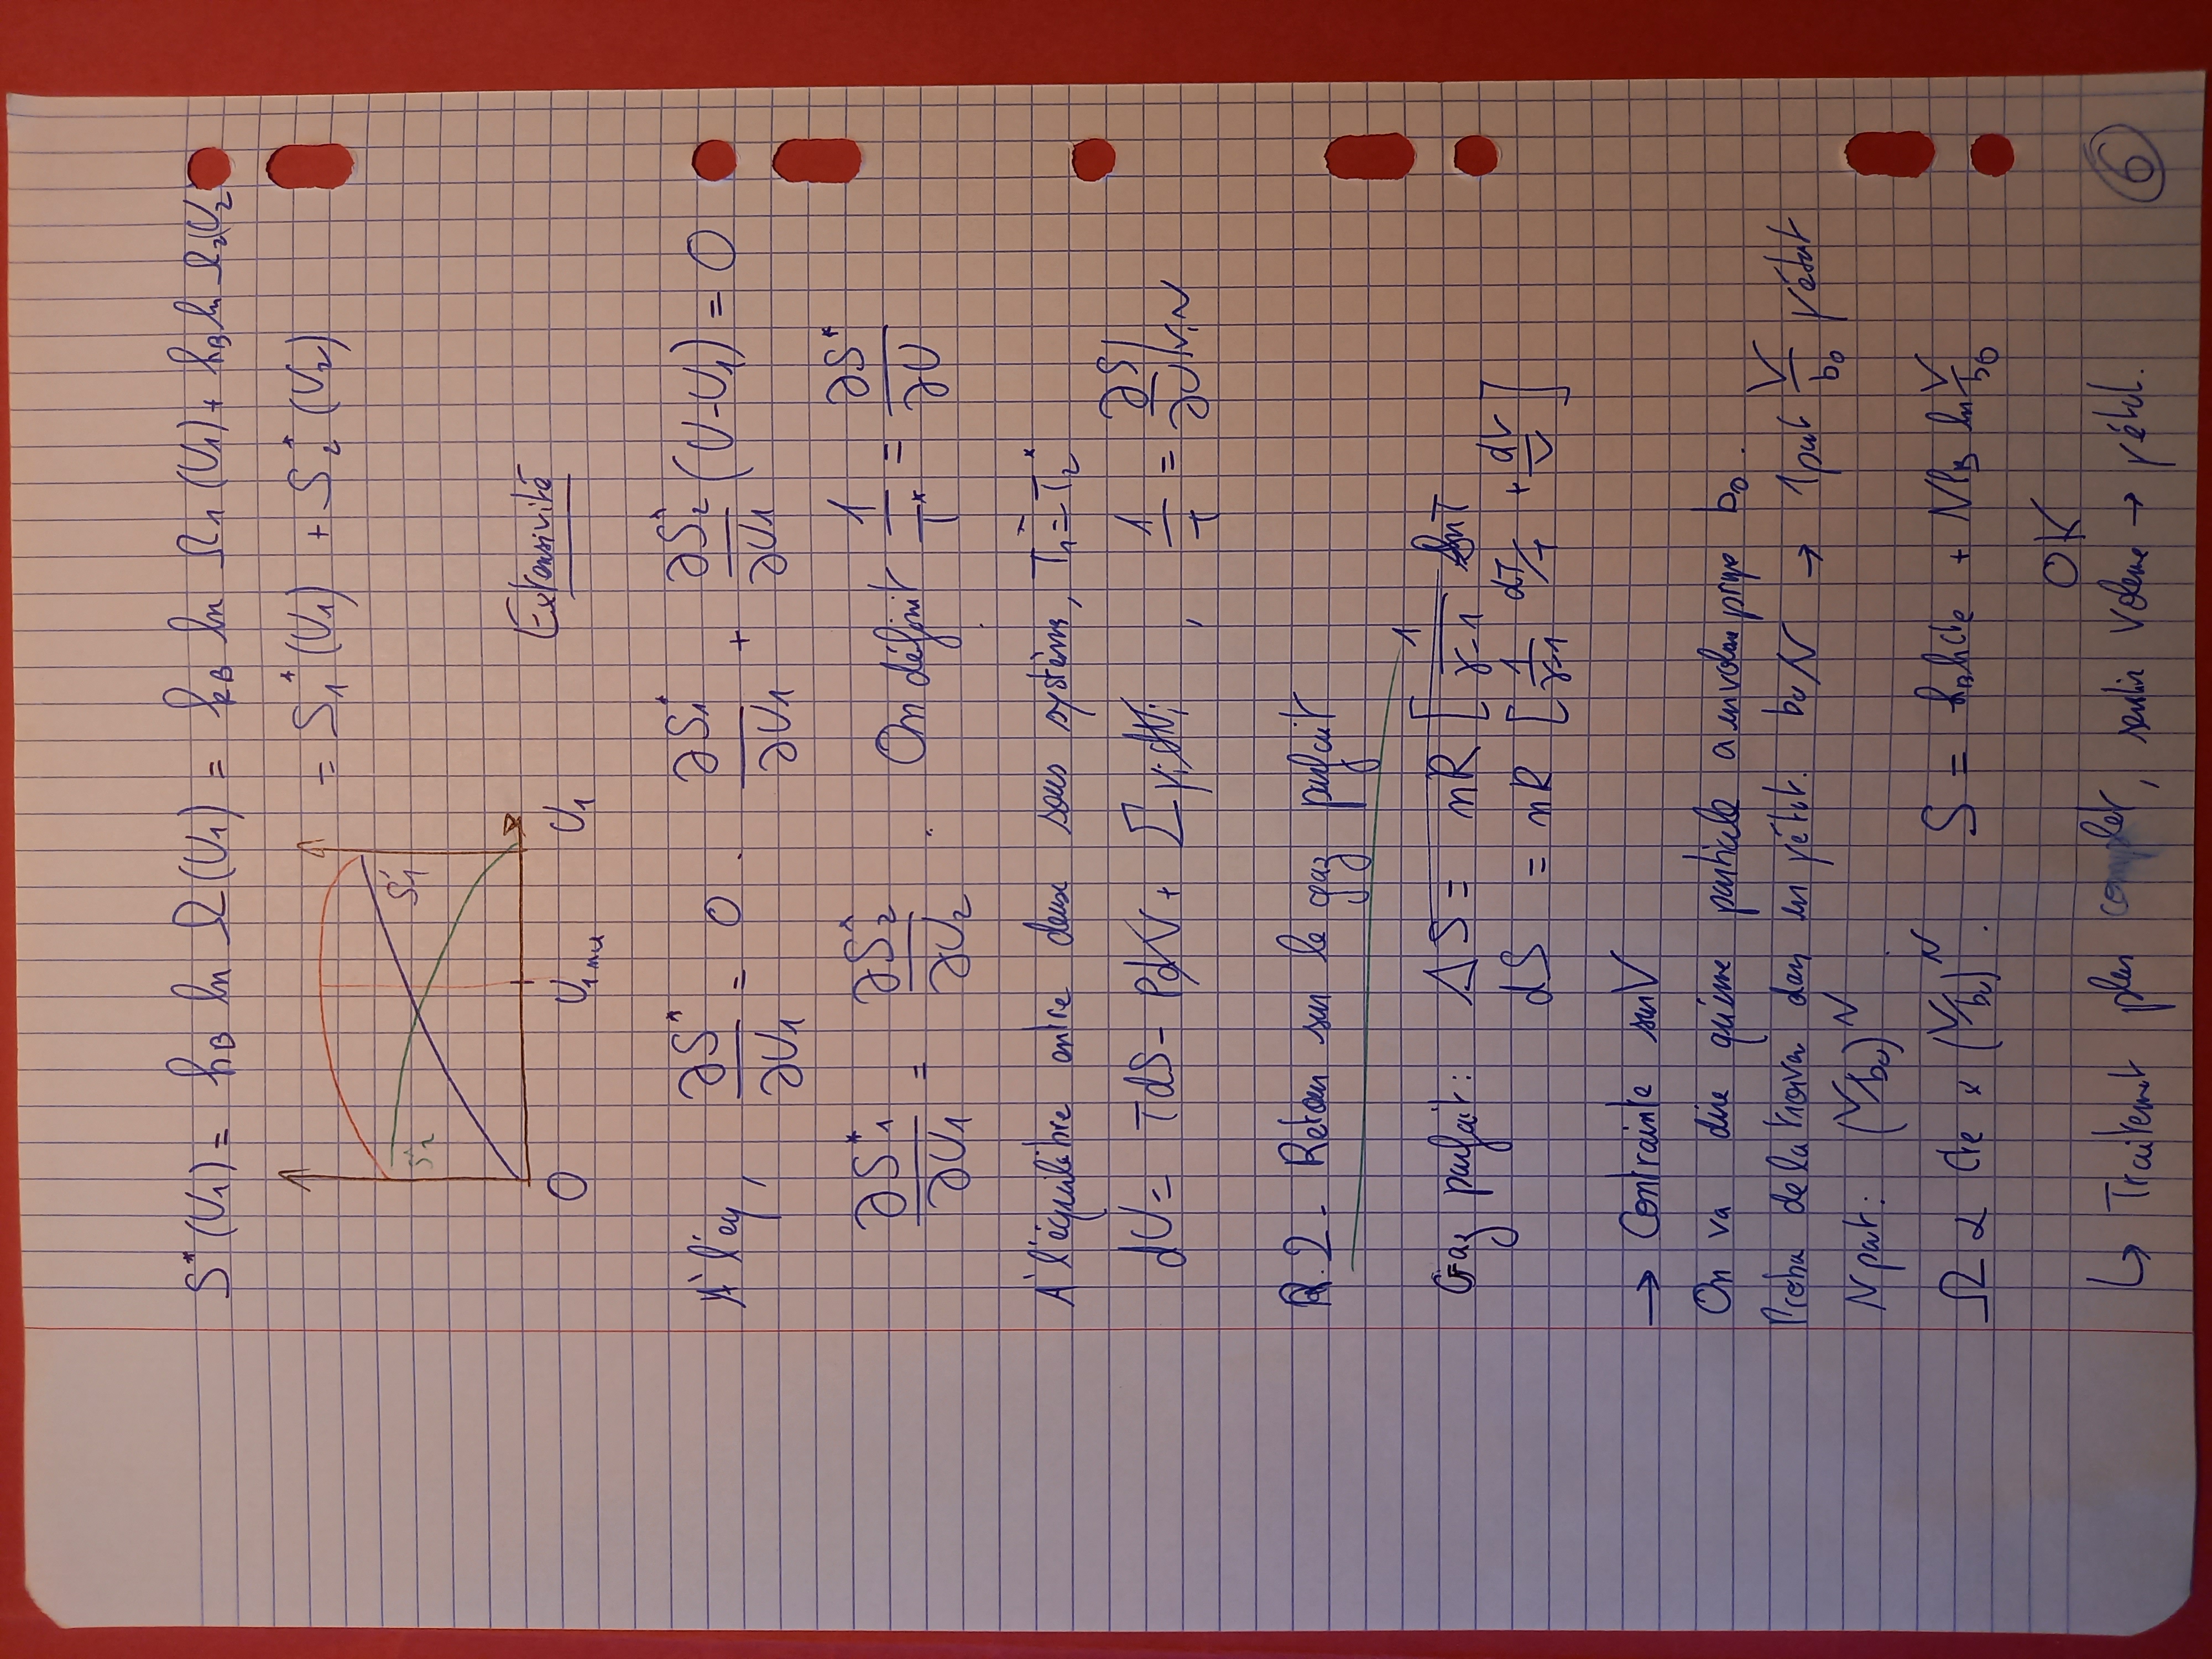 S*(U₁) = k_B ln Ω(U₁) = k_B ln Ω₁(U₁) + k_B ln Ω₂(U₂)
= S₁*(U₁) + S₂*(U₂)
S₂* S₁*
0 U₁ max U₁
Extensivité
A l'éq, ∂S*/∂U₁ = 0. ∂S₁*/∂U₁ + ∂S₂*/∂U₁ (U-U₁) = 0
∂S₁*/∂U₁ = ∂S₂*/∂U₂. On définit 1/T* = ∂S*/∂U
A l'équilibre entre deux sous systèmes, T₁* = T₂*
dU = TdS - PdV + Σ μᵢ dNᵢ, 1/T = ∂S/∂U|V,N
R.2 - Retour sur le gaz parfait
Gaz parfait: ΔS = nR [ 1/γ-1 ln T
dS = nR [ 1/γ-1 dT/T + dV/V ]
→ Contrainte sur V
On va dire qu'une particule a un volume propre b₀.
Proba de la trouver dans un rétat. b₀/V → 1 part V/b₀ rétat
N part: (V/b₀)^N
Ω α cte × (V/b₀)^N. S = k_B ln cte + Nk_B ln V/b₀
OK
↳ Traitement plus complet, volume → rétat.
6